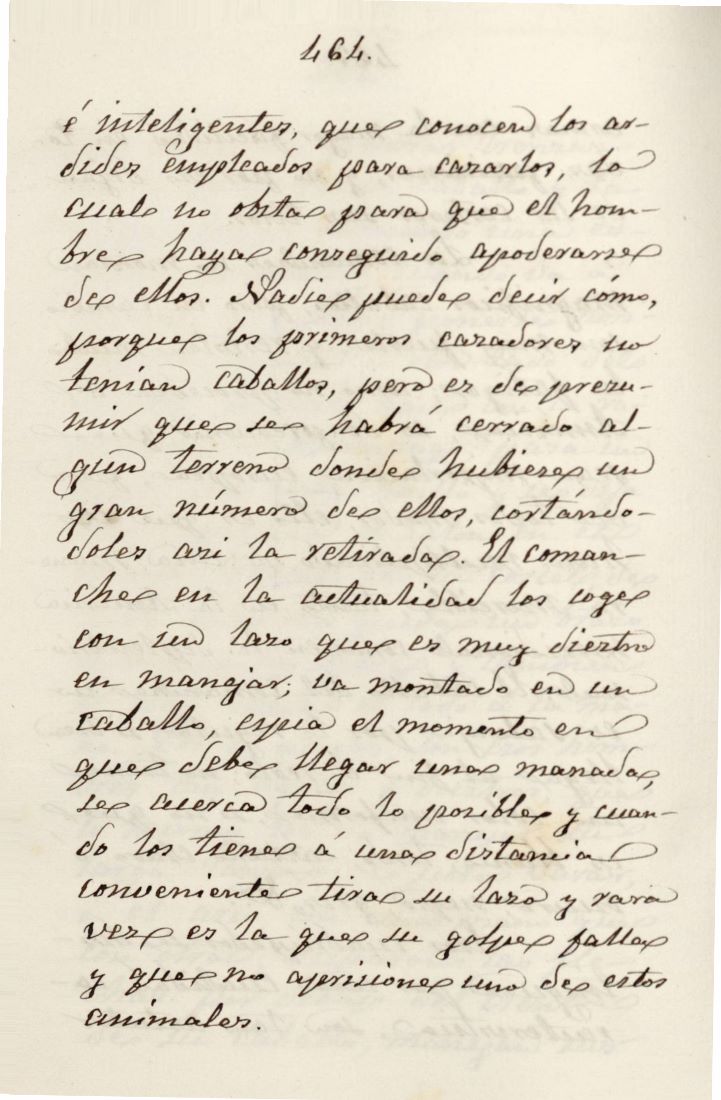 464.
é inteligentes, que conocen los ar-
dides empleados para cazarlos, lo
cual no obsta para que el hom-
bre haya conseguido apoderarse
de ellos. Nadie puede decir cómo,
porque los primeros cazadores no
tenian caballos, pero es de presu-
mir que se habrá cerrado al-
gun terreno donde hubiese un
gran número de ellos, cortándo-
doles asi la retirada. El coman-
che en la actualidad los coge
con un lazo que es muy diestro
en manejar; va montado en un
caballo, espia el momento en
que debe llegar una manada,
se acerca todo lo posible y cuan-
do los tiene á una distancia
conveniente tira su lazo y rara
vez es la que su golpe falla
y que no aprisione uno de estos
animales.